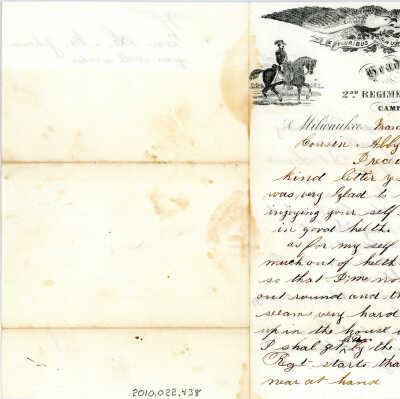 E PLURIBUS U
Head
2ND REGIMEN
CAMP
Milwaukee Mar
Cousen Abby
I recie
kind letter ye
was very glad to
injoying your self
in good helth.
as for my self
much out of helth
so that I, me no
out round and th
seams very hard
up in the house
I shal get by the
Regt starts tha
near at hand
2010.022.438